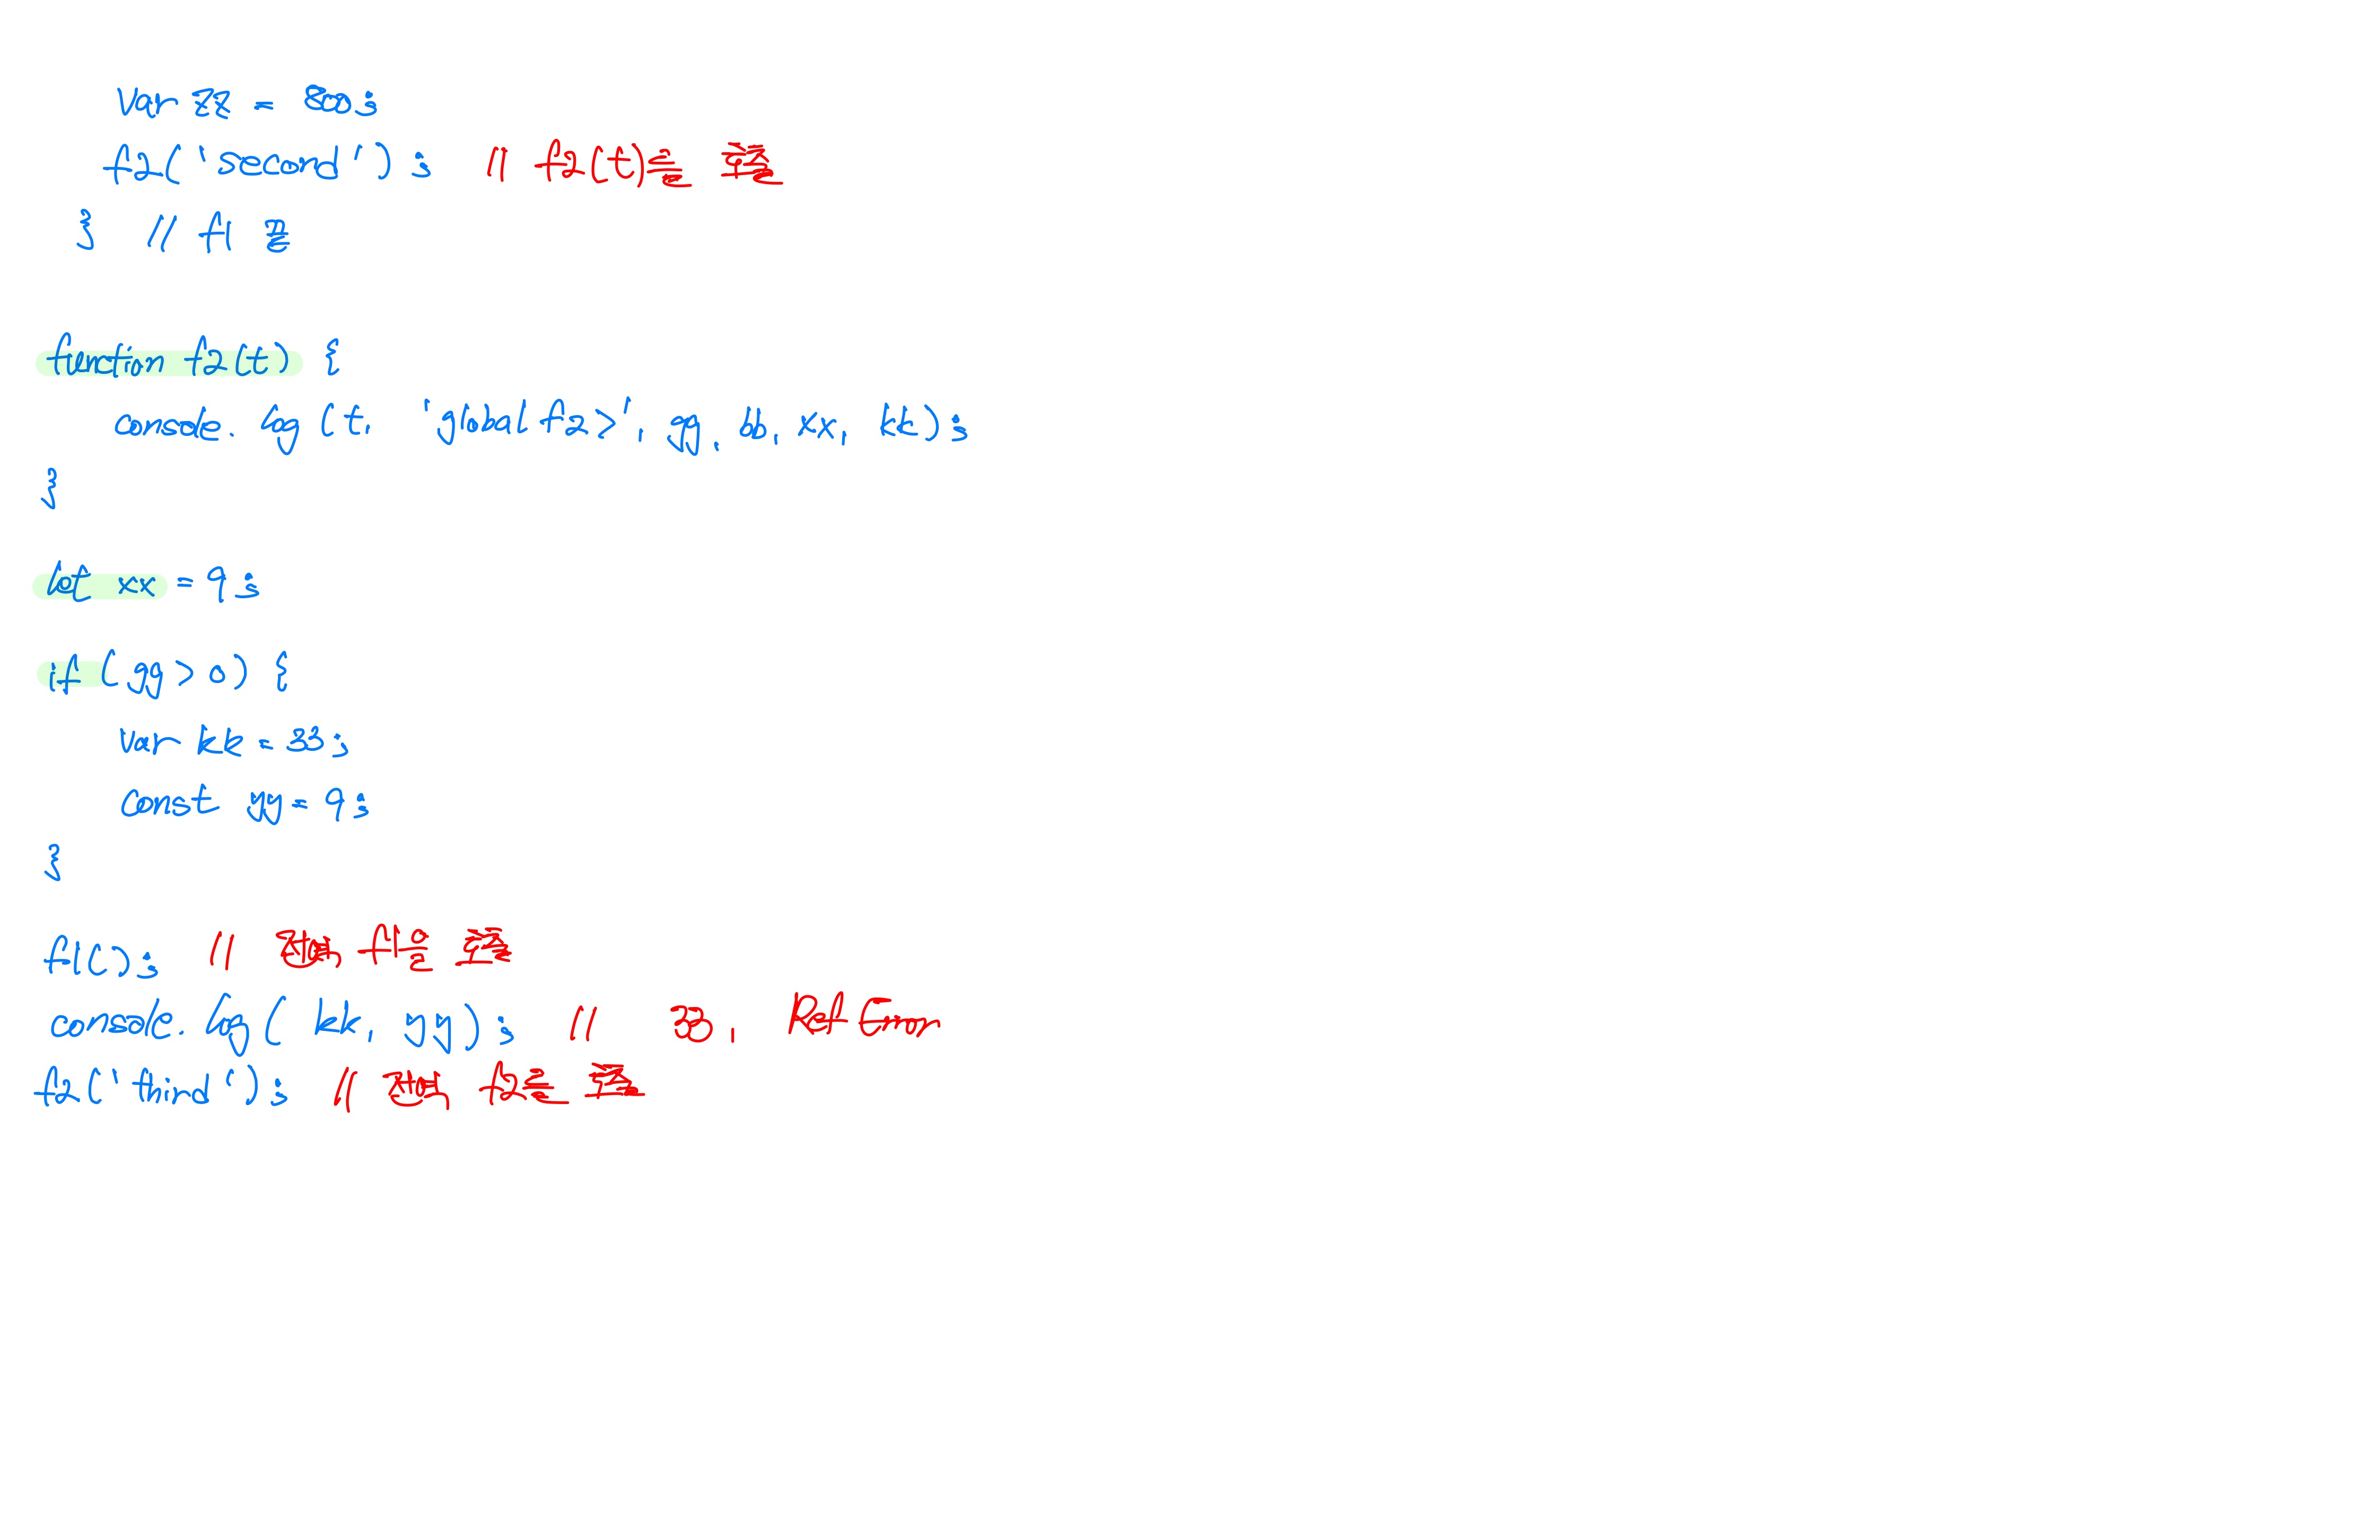 var zz = 800;
f2('second'); // f2(t)를 호출
} // f1 끝
function f2(t) {
console.log(t, 'global f2>', gg, bb, xx, kk);
}
let xx = 9;
if (gg > 0) {
var kk = 33;
const yy = 9;
}
f1(); // 전역 f1을 호출
console.log(kk, yy); // 33, Ref Error
f2('third'); // 전역 f2를 호출